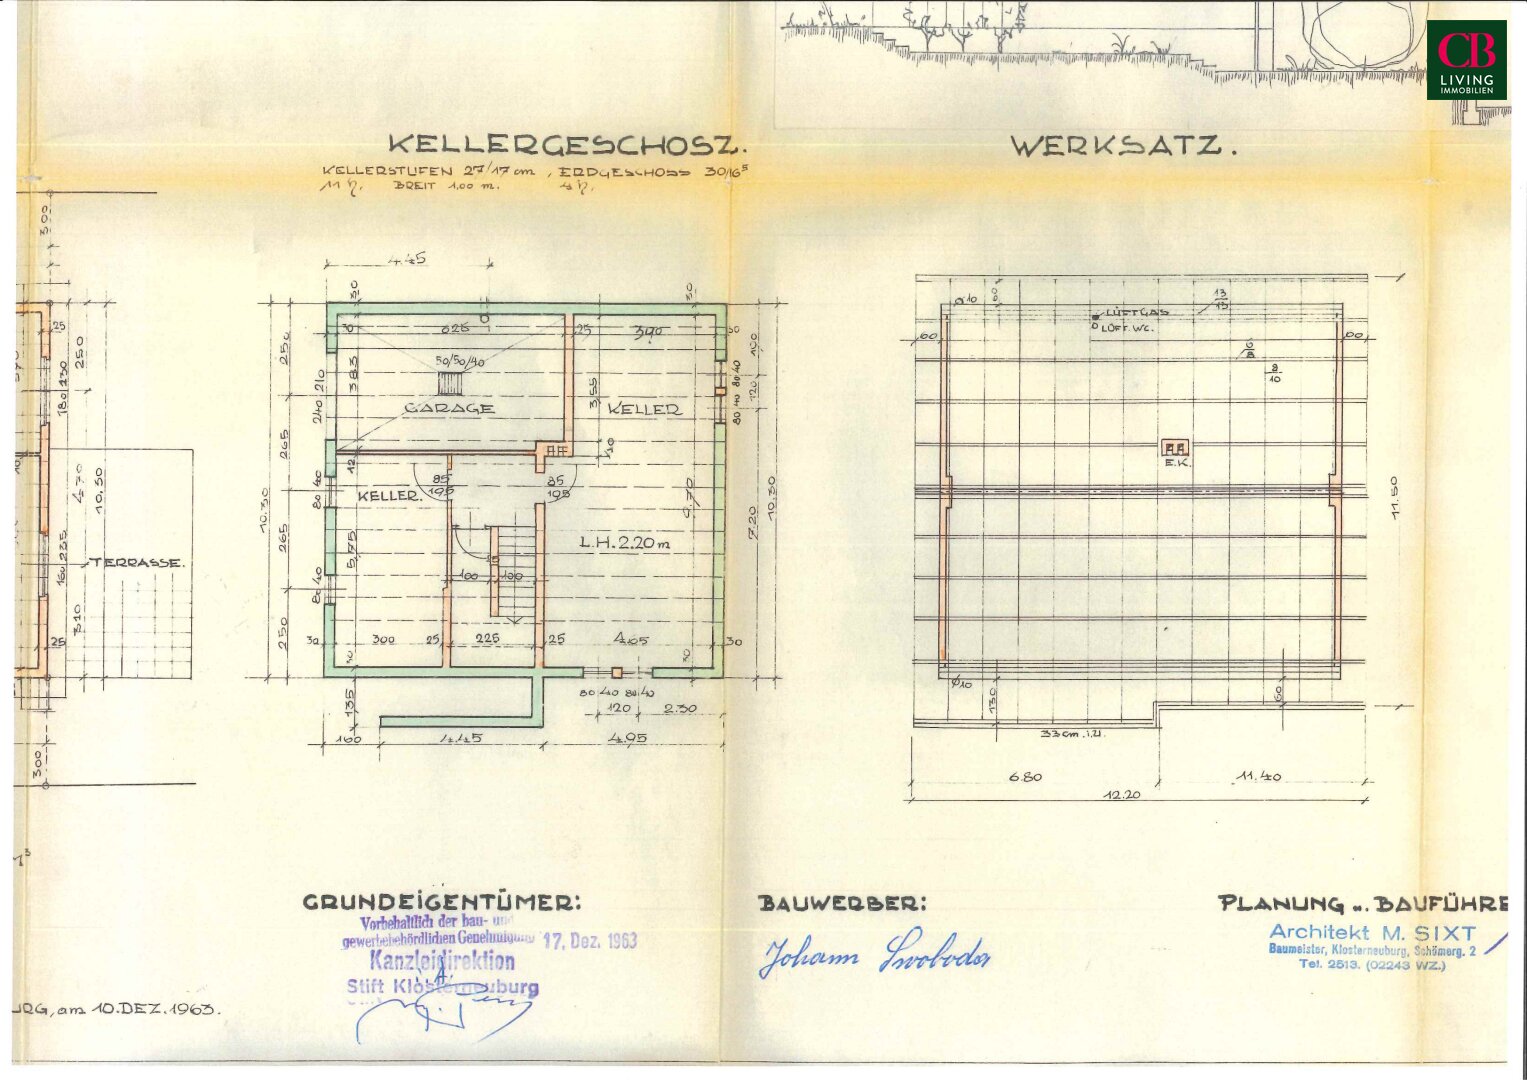 CB
LIVING
IMMOBILIEN
KELLERGESCHOSZ.
KELLERSTUFEN 27/17 cm , ERDGESCHOSS 30/16⁵
BREIT 1,00 m.
WERKSATZ.
300
25
250
180 230
470
10,30
TERRASSE.
160 235
310
25
300
4.45
30
30
30
625
25
390
30
50/50/40
383
GARAGE
355
KELLER
250
240 210
265
12
10
85
195
85
195
KELLER.
80 40
10.30
265
5,75
L.H. 2.20 m
80 40
100
100
250
30
300
25
225
25
4.05
30
30
30
100
80 40
120
80 40
7.20
10.30
135
80 40 80 40
120
2.30
160
4.45
4.95
Ø10
60
13
13
LÜFT GAS
LÜFT. WC.
60
60
8
10
E.K.
11.50
Ø10
130
60
33 cm. i.ü.
6.80
11.40
12.20
GRUNDEIGENTÜMER:
Vorbehaltlich der bau- und
gewerbebehördlichen Genehmigung
17. Dez. 1963
Kanzleidirektion
Stift Klosterneuburg
BAUWERBER:
Johann Swoboda
PLANUNG u. BAUFÜHRE
Architekt M. SIXT
Baumeister, Klosterneuburg, Schömerg. 2
Tel. 2513. (02243 WZ.)
URG, am 10. DEZ. 1963.